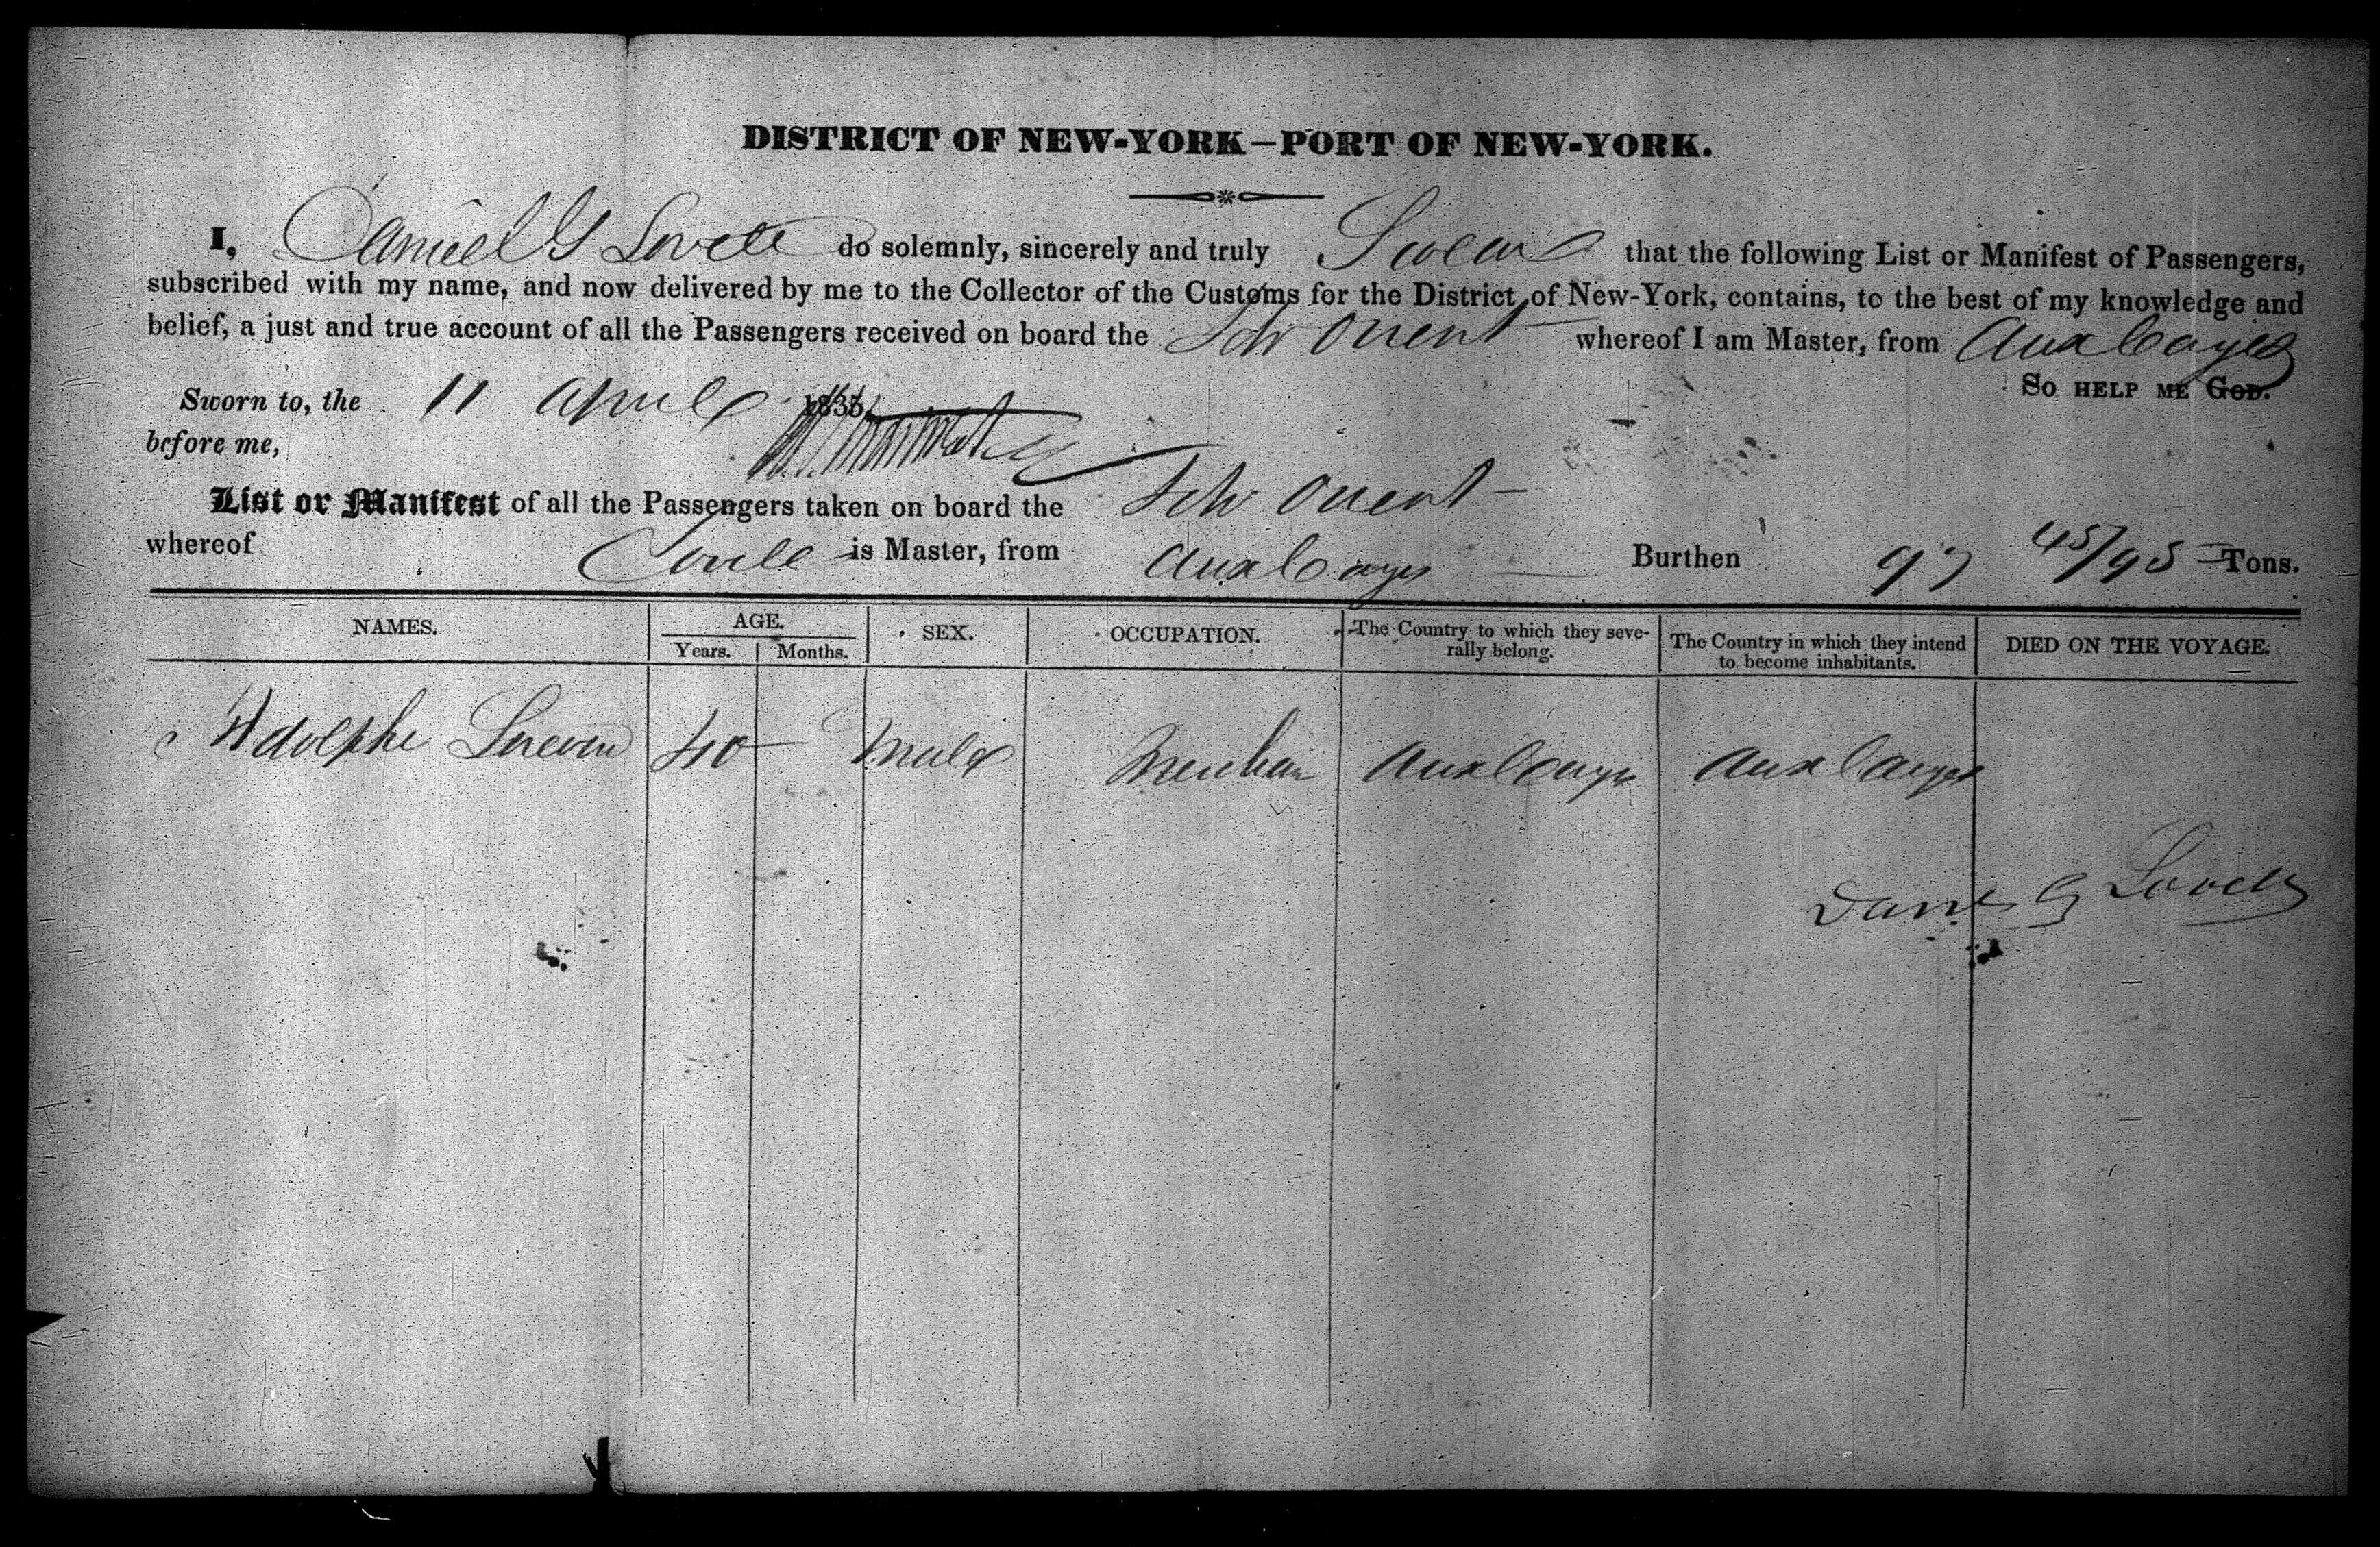 DISTRICT OF NEW-YORK—PORT OF NEW-YORK.
I, Daniel G Lovell do solemnly, sincerely and truly Swear that the following List or Manifest of Passengers,
subscribed with my name, and now delivered by me to the Collector of the Customs for the District of New-York, contains, to the best of my knowledge and
belief, a just and true account of all the Passengers received on board the Schr Orient whereof I am Master, from Aux Cayes
Sworn to, the 11 April 1835 So help me God.
before me,
List or Manifest of all the Passengers taken on board the Schr Orient
whereof is Master, from Aux Cayes Burthen 97 45/95 Tons.
NAMES. AGE. SEX. OCCUPATION. The Country to which they seve- The Country in which they intend DIED ON THE VOYAGE.
Years. Months. rally belong. to become inhabitants.
Adolphe 40 Male Merchan Aux Cayes Aux Cayes
G Lovell